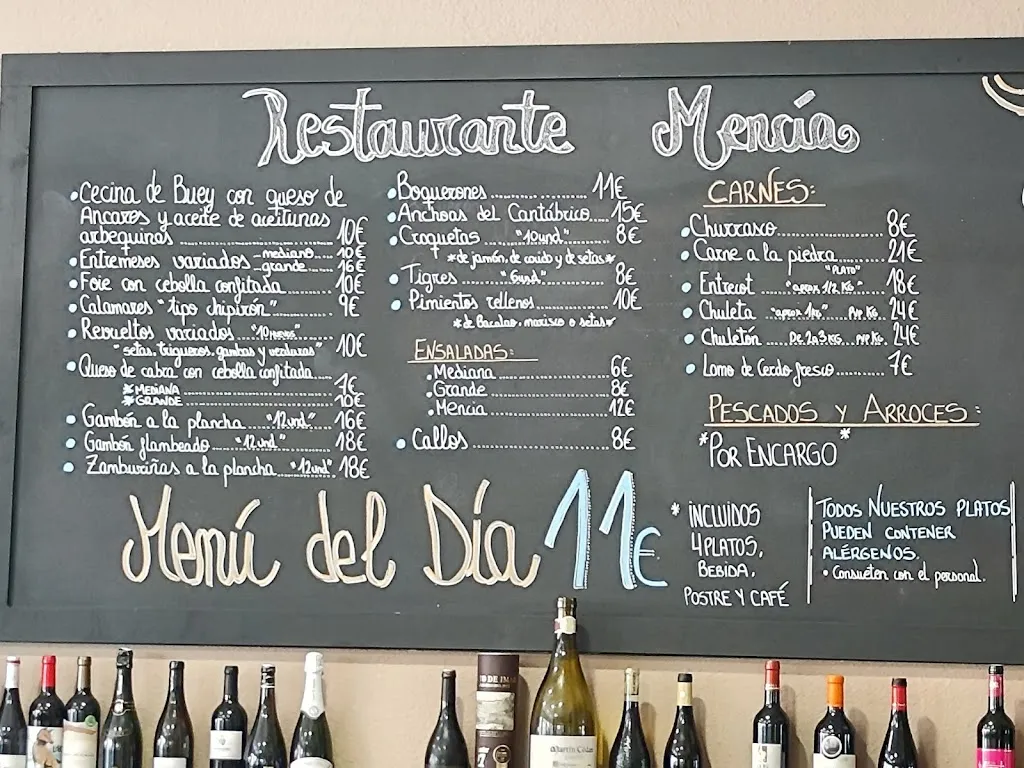 Restaurante Mencía
Cecina de Buey con queso de
Ancares y aceite de aceitunas
arbequinas 10€
Entremeses variados mediano 10€
grande 16€
Foie con cebolla confitada 10€
Calamares "tipo chipirón" 9€
Revueltos variados
"setas, trigueros, gambas y verduras" 10€
Queso de cabra con cebolla confitada
*MEDIANA 7€
*GRANDE 10€
Gambón a la plancha "12und" 16€
Gambón flambeado "12und" 18€
Zamburiñas a la plancha "12und" 18€
Boquerones 11€
Anchoas del Cantábrico 15€
Croquetas "10und" 8€
*de jamón, de cocido y de setas*
Tigres "6und" 8€
Pimientos rellenos 10€
*de Bacalao, marisco o setas*
ENSALADAS:
Mediana 6€
Grande 8€
Mencia 12€
Callos 8€
CARNES:
Churrasco 8€
Carne a la piedra 21€
"PLATO"
Entrecot "aprox 1/2 Kg" 18€
Chuleta "aprox 1kg" PVP KG. 24€
Chuletón DE 2 a 3 KGS PVP KG. 24€
Lomo de Cerdo fresco 7€
PESCADOS Y ARROCES:
*POR ENCARGO*
Menú del Día 11€
* INCLUIDOS
4 PLATOS,
BEBIDA,
POSTRE Y CAFÉ
TODOS NUESTROS PLATOS
PUEDEN CONTENER
ALÉRGENOS.
• Consulten con el personal.
Martín Códax